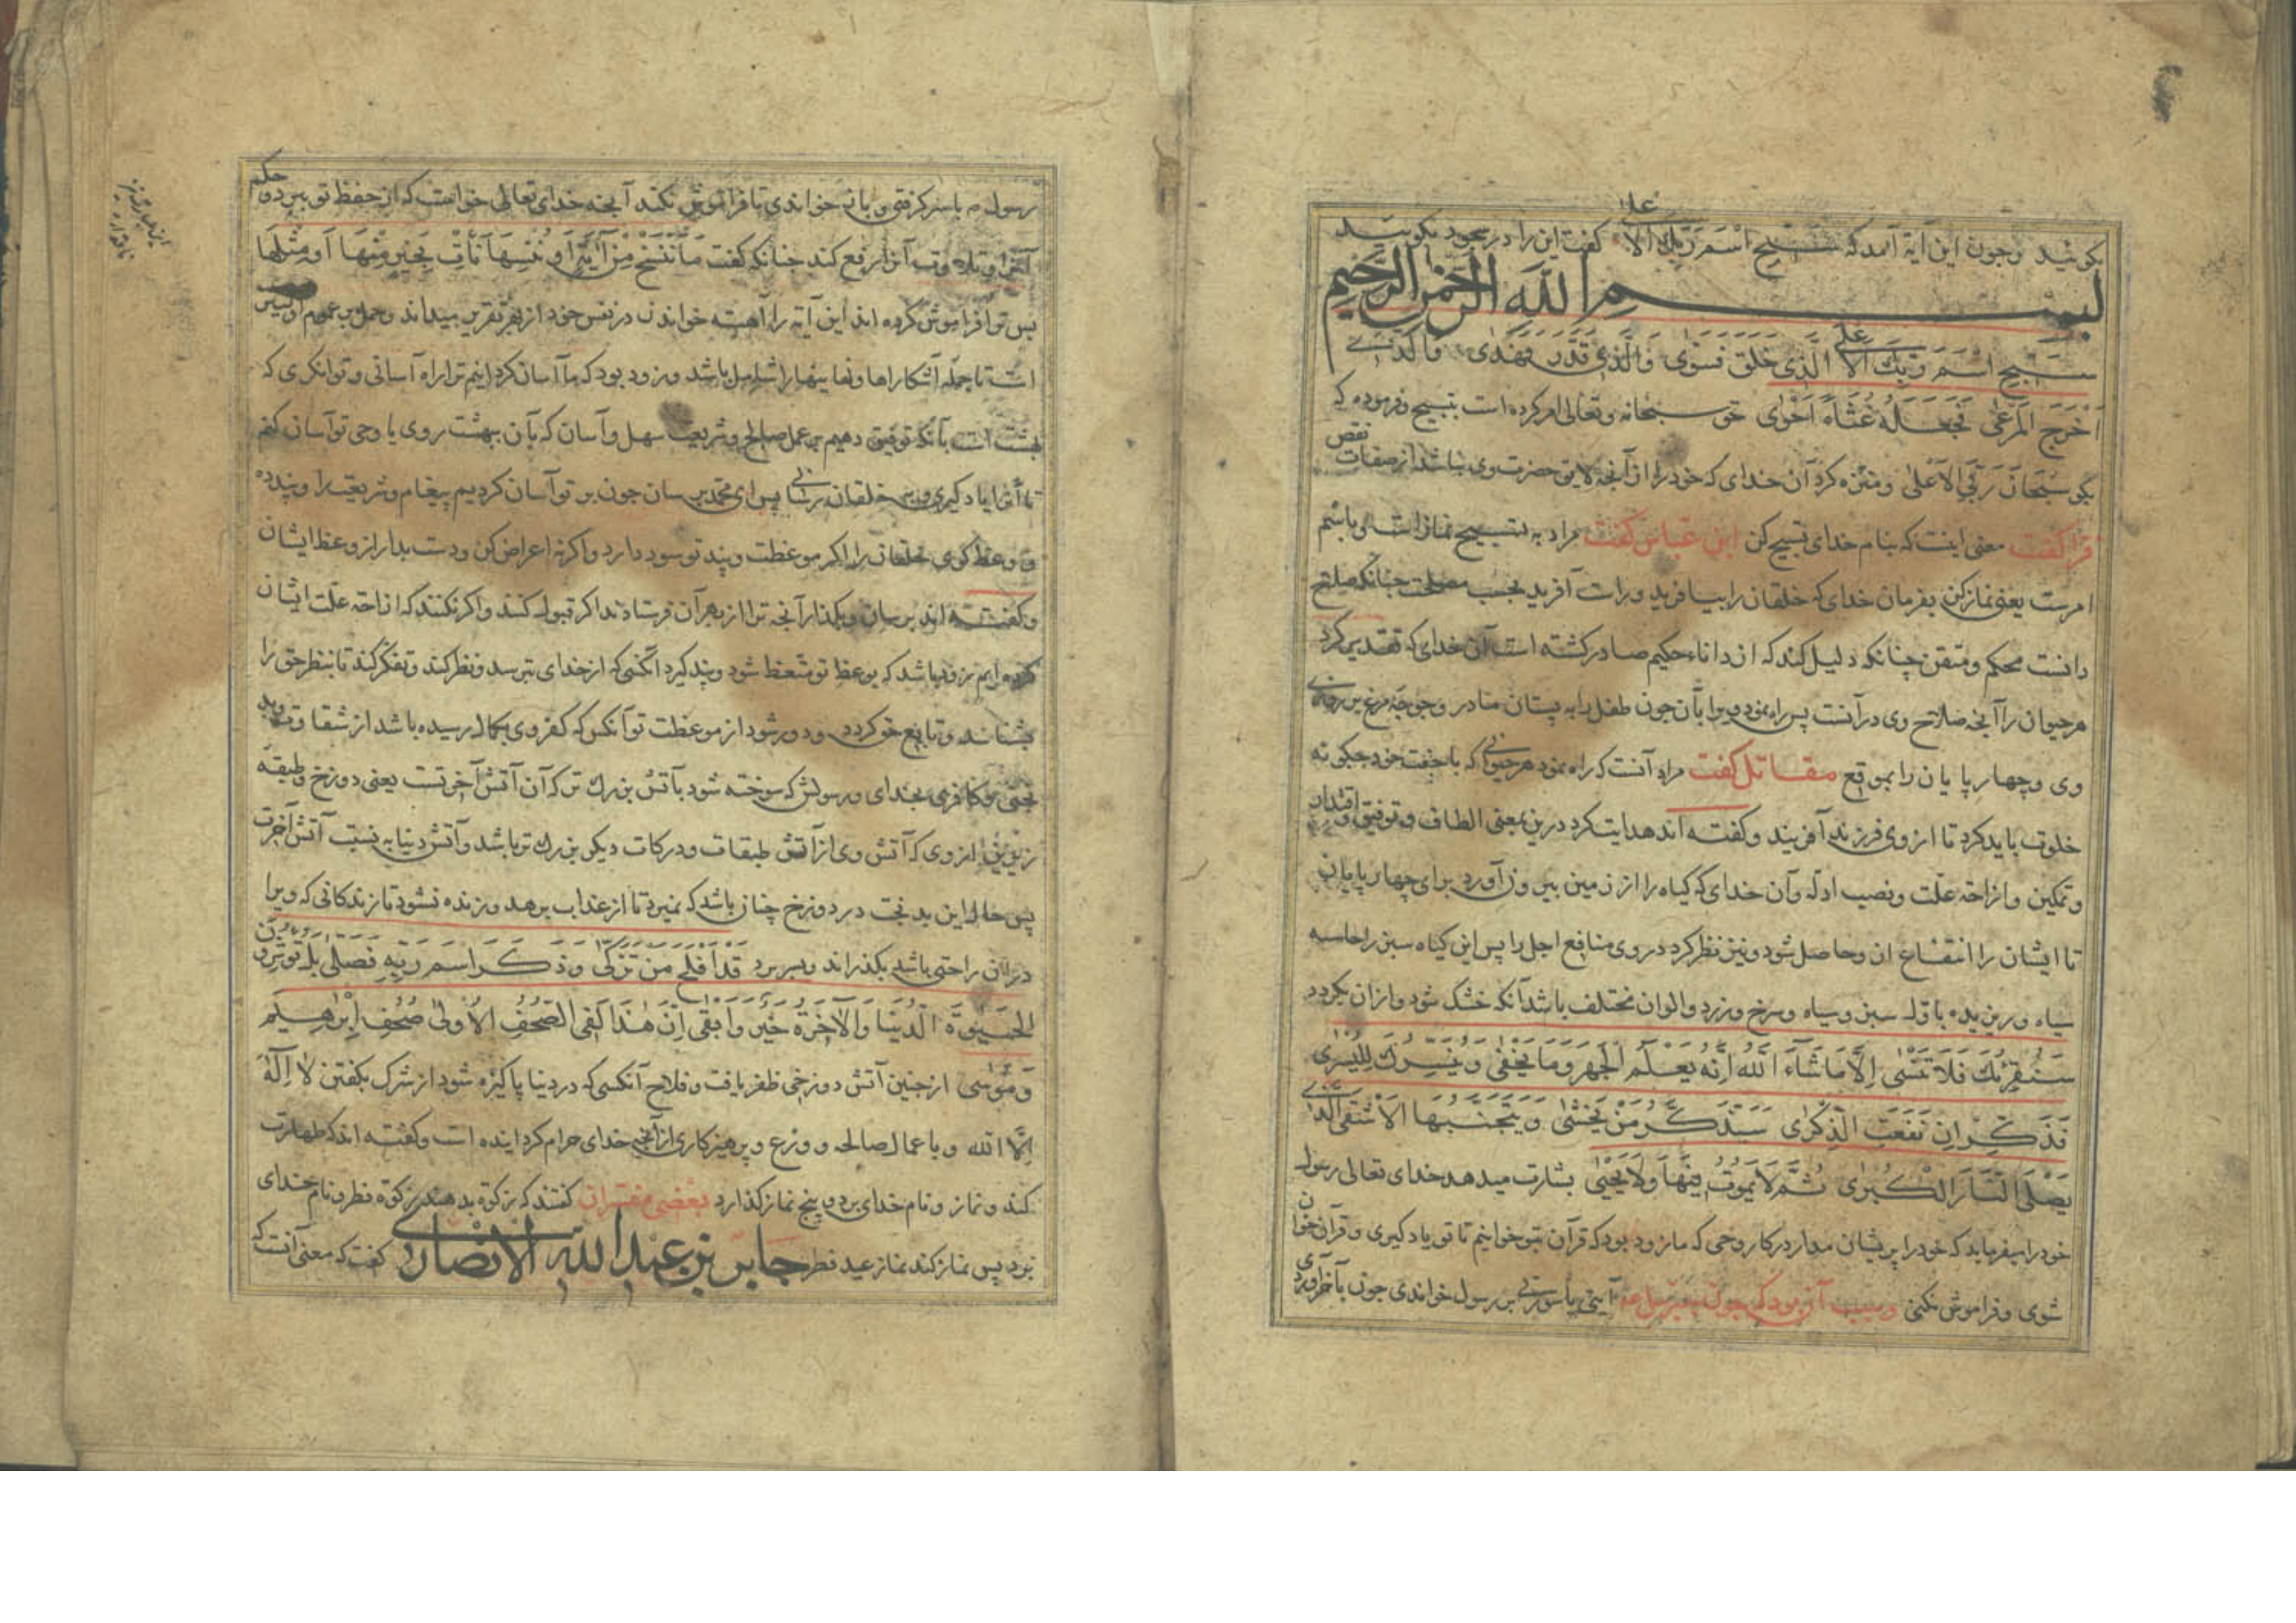 بكوئيد وچون اين آية آمد كه سَبِّحِ اسْمَ رَبِّكَ الْاَعلى كفت اين را در سجود بكوئيد
بسم الله الرحمن الرحيم
سَبِّحِ اسْمَ رَبِّكَ الْاَعلى الَّذِي خَلَقَ فَسَوّٰى وَالَّذِي قَدَّرَ فَهَدٰى وَالَّذِي
اَخْرَجَ الْمَرْعٰى فَجَعَلَهُ غُثَاءً اَحْوٰى حق سبحانه وتعالى امر كرده است بتسبيح وفرموده كه
بكو سُبْحَانَ رَبِّيَ الْاَعْلىٰ ومنزه كرد آن خداى كه خود را از آنجه لايق حضرت وى نباشد از صفات نقص
فرا كفت معنى اينست كه بنام خداى تسبيح كن ابن عباس كفت مراد به تسبيح نماز است وباسم
امرست يعنى نماز كن بفرمان خداى كه خلقان را بيافريد وراست آفريد بحسب مصلحت چنانكه صلاح
دانست محكم ومتقن چنانكه دليل كند كه از داناء حكيم صادر كشته است آن خداى كه تقدير كرد
هر حيوان را آنجه صلاح وى در آنست پس راه نمود ويرا بآن جون طفل را به پستان مادر وجوجهٔ مرغ بر روزى
وى وچهارپايان را بموقع مقاتل كفت مراد آنست كه راه نمود هر حيوانى كه با جفت خود چكونه
خلوت بايد كرد تا از وى فرزند آفريند وكفته اند هدايت كرد درين بمعنى الطاف وتوفيق واقتدار
وتمكين وازاحه علّت ونصب ادلّه وآن خداى كه كياه را از زمين بيرون آورد براى چهارپايان
تا ايشان را انتفاع ان وحاصل شود ونيز نظر كرد در وى منافع اجل را پس اين كياه سبز را
سياه وريزيده باوّل سبز وسياه وسرخ وزرد والوان مختلف باشد آنكه خشك شود وازان بكردد
سَنُقْرِئُكَ فَلَا تَنْسٰى اِلَّا مَا شَاءَ اللّٰهُ اِنَّهُ يَعْلَمُ الْجَهْرَ وَمَا يَخْفٰى وَنُيَسِّرُكَ لِلْيُسْرٰى
فَذَكِّرْ اِنْ نَفَعَتِ الذِّكْرٰى سَيَذَّكَّرُ مَنْ يَخْشٰى وَيَتَجَنَّبُهَا الْاَشْقَى الَّذِي
يَصْلَى النَّارَ الْكُبْرٰى ثُمَّ لَا يَمُوتُ فِيهَا وَلَا يَحْيٰى بشارت ميدهد خداى تعالى رسول
خود را ميفرمايد كه خود را پريشان مدار در كار وحى كه ما زود بود كه قرآن بتو خوانيم تا تو ياد كيرى وقرآن خوان
شوى وفراموش نكنى وسبب آن بود كه جون جبرئيل ع م آيتى يا سورتى بر رسول خواندى جون بآخر آوردى
رسول م باسر كرفتى وبا زخواندى تا فراموش نكند آنجه خداى تعالى خواست كه از حفظ تو ببرد وحكم
آنرا وتلاوت آنرا رفع كند چنانكه كفت مَا نَنْسَخْ مِنْ آيَةٍ اَوْ نُنْسِهَا نَأْتِ بِخَيْرٍ مِنْهَا اَوْ مِثْلِهَا
بس تو فراموش كرده اند اين آيه را آهسته خواندن در نفس خود از بهر تقرير ميداند وحمل بر عموم اوليتر
است تا جمله آشكاراها ونهانيها را شامل باشد وزود بود كه ما آسان كردانيم ترا راه آسانى وتوانكرى كه
بهشت است بآنكه توفيق دهيم بر عمل صالح وشريعت سهل وآسان كه بآن ببهشت روى يا وحى تو آسان كنم
تا آنرا ياد كيرى وبر خلقان رسانى پس اى محمد برسان جون بر تو آسان كرديم پيغام وشريعت را وپند ده
ووعظ كوى خلقان را اكر موعظت وپند تو سود دارد واكرنه اعراض كن ودست بدار از وعظ ايشان
وكفته اند برسان وبكذار آنجه ترا از بهر آن فرستادند اكر قبول كنند واكر نكنند كه ازاحه علّت ايشان
كرده ايم زود باشد كه بوعظ تو متّعظ شود وپند كيرد آنكسى كه از خداى بترسد ونظر كند وتفكر كند تا بنظر حق را
بشناسد وتابع حق كردد ودور شود از موعظت تو آنكس كه كفر وى بكمال رسيده باشد از شقاوت وبد
بختى وكافرى بخداى ورسولش كه سوخته شود بآتش بزرك تر كه آن آتش آخرتست يعنى دوزخ وطبقه
زيرين از وى كه آتش وى از آتش طبقات ودركات ديكر بزرك تر باشد وآتش دنيا به نسبت آتش آخرت
پس حال اين بدبخت در دوزخ چنان باشد كه نميرد تا از عذاب برهد وزنده نشود تا زندكانى كه ويرا
در آن راحتى باشد بكذراند وبسر برد قَدْ اَفْلَحَ مَنْ تَزَكّٰى وَذَكَرَ اسْمَ رَبِّهِ فَصَلّٰى بَلْ تُؤْثِرُونَ
الْحَيٰوةَ الدُّنْيَا وَالْآخِرَةُ خَيْرٌ وَاَبْقٰى اِنَّ هٰذَا لَفِي الصُّحُفِ الْاُولىٰ صُحُفِ اِبْرٰهِيمَ
وَمُوسٰى از چنين آتش دوزخى ظفر يافت وفلاح آنكسى كه در دنيا پاكيزه شود از شرك بكفتن لَا اِلٰهَ
اِلَّا الله وباعمال صالحه وورع وپرهيزكارى از آنجه خداى حرام كردانيده است وكفته اند كه طهارت
كند ونماز ونام خداى برد وپنج نماز كذارد بعضى مفسران كفتند كه زكوة بدهند زكوة فطر ونام خداى
برد پس نماز كند نماز عيد فطر جابر بن عبد الله الانصارى كفت كه معنى آنست كه